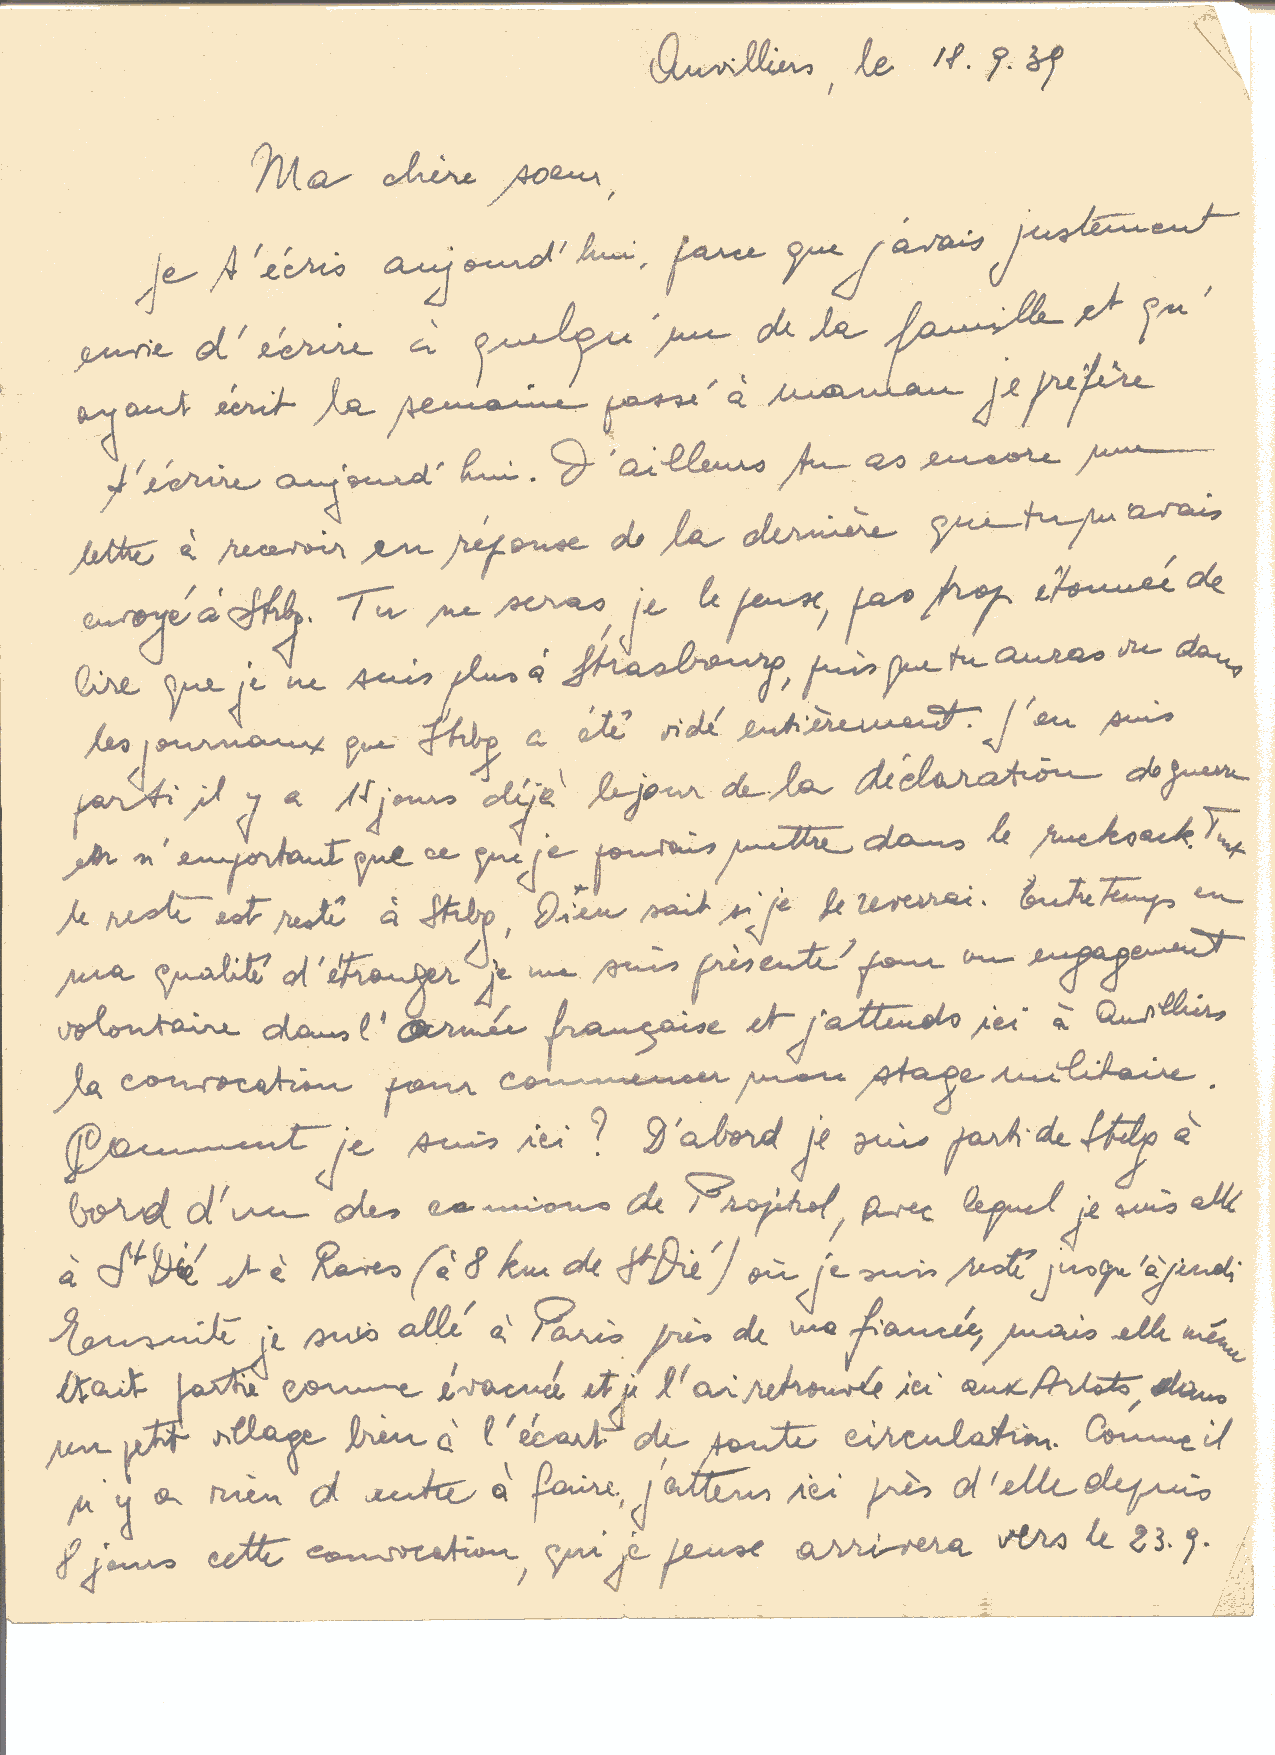 Auvilliers, le 18.9.39
Ma chère soeur,
Je t'écris aujourd'hui, parce que j'avais justement
envie d'écrire à quelqu'un de la famille et qu'
ayant écrit la semaine passé à maman je préfère
t'écrire aujourd'hui. D'ailleurs tu as encore une
lettre à recevoir en réponse de la dernière que tu m'avais
envoyé à Strbg. Tu ne seras, je le pense, pas trop étonnée de
lire que je ne suis plus à Strasbourg, puisque tu auras vu dans
les journaux que Strbg a été vidé entièrement. J'en suis
parti il y a 15 jours déjà le jour de la déclaration de guerre
en n'emportant que ce que je pouvais mettre dans le rucksack. Tout
le reste est resté à Strbg, Dieu sait si je le reverrai. Entretemps en
ma qualité d'étranger je me suis présenté pour un engagement
volontaire dans l'armée française et j'attends ici à Auvilliers
la convocation pour commencer mon stage militaire.
Comment je suis ici? D'abord je suis parti de Strbg à
bord d'un des camions de Propétrol, avec lequel je suis allé
à St Dié et à Raves (à 8 km de St Dié) où je suis resté jusqu'à jeudi
Ensuite je suis allé à Paris près de ma fiancée, mais elle même
était partie comme évacuée et je l'ai retrouvée ici aux, dans
un petit village bien à l'écart de toute circulation. Comme il
n'y a rien d'entre à faire, j'attens ici près d'elle depuis
8 jours cette convocation, qui je pense arrivera vers le 23.9.